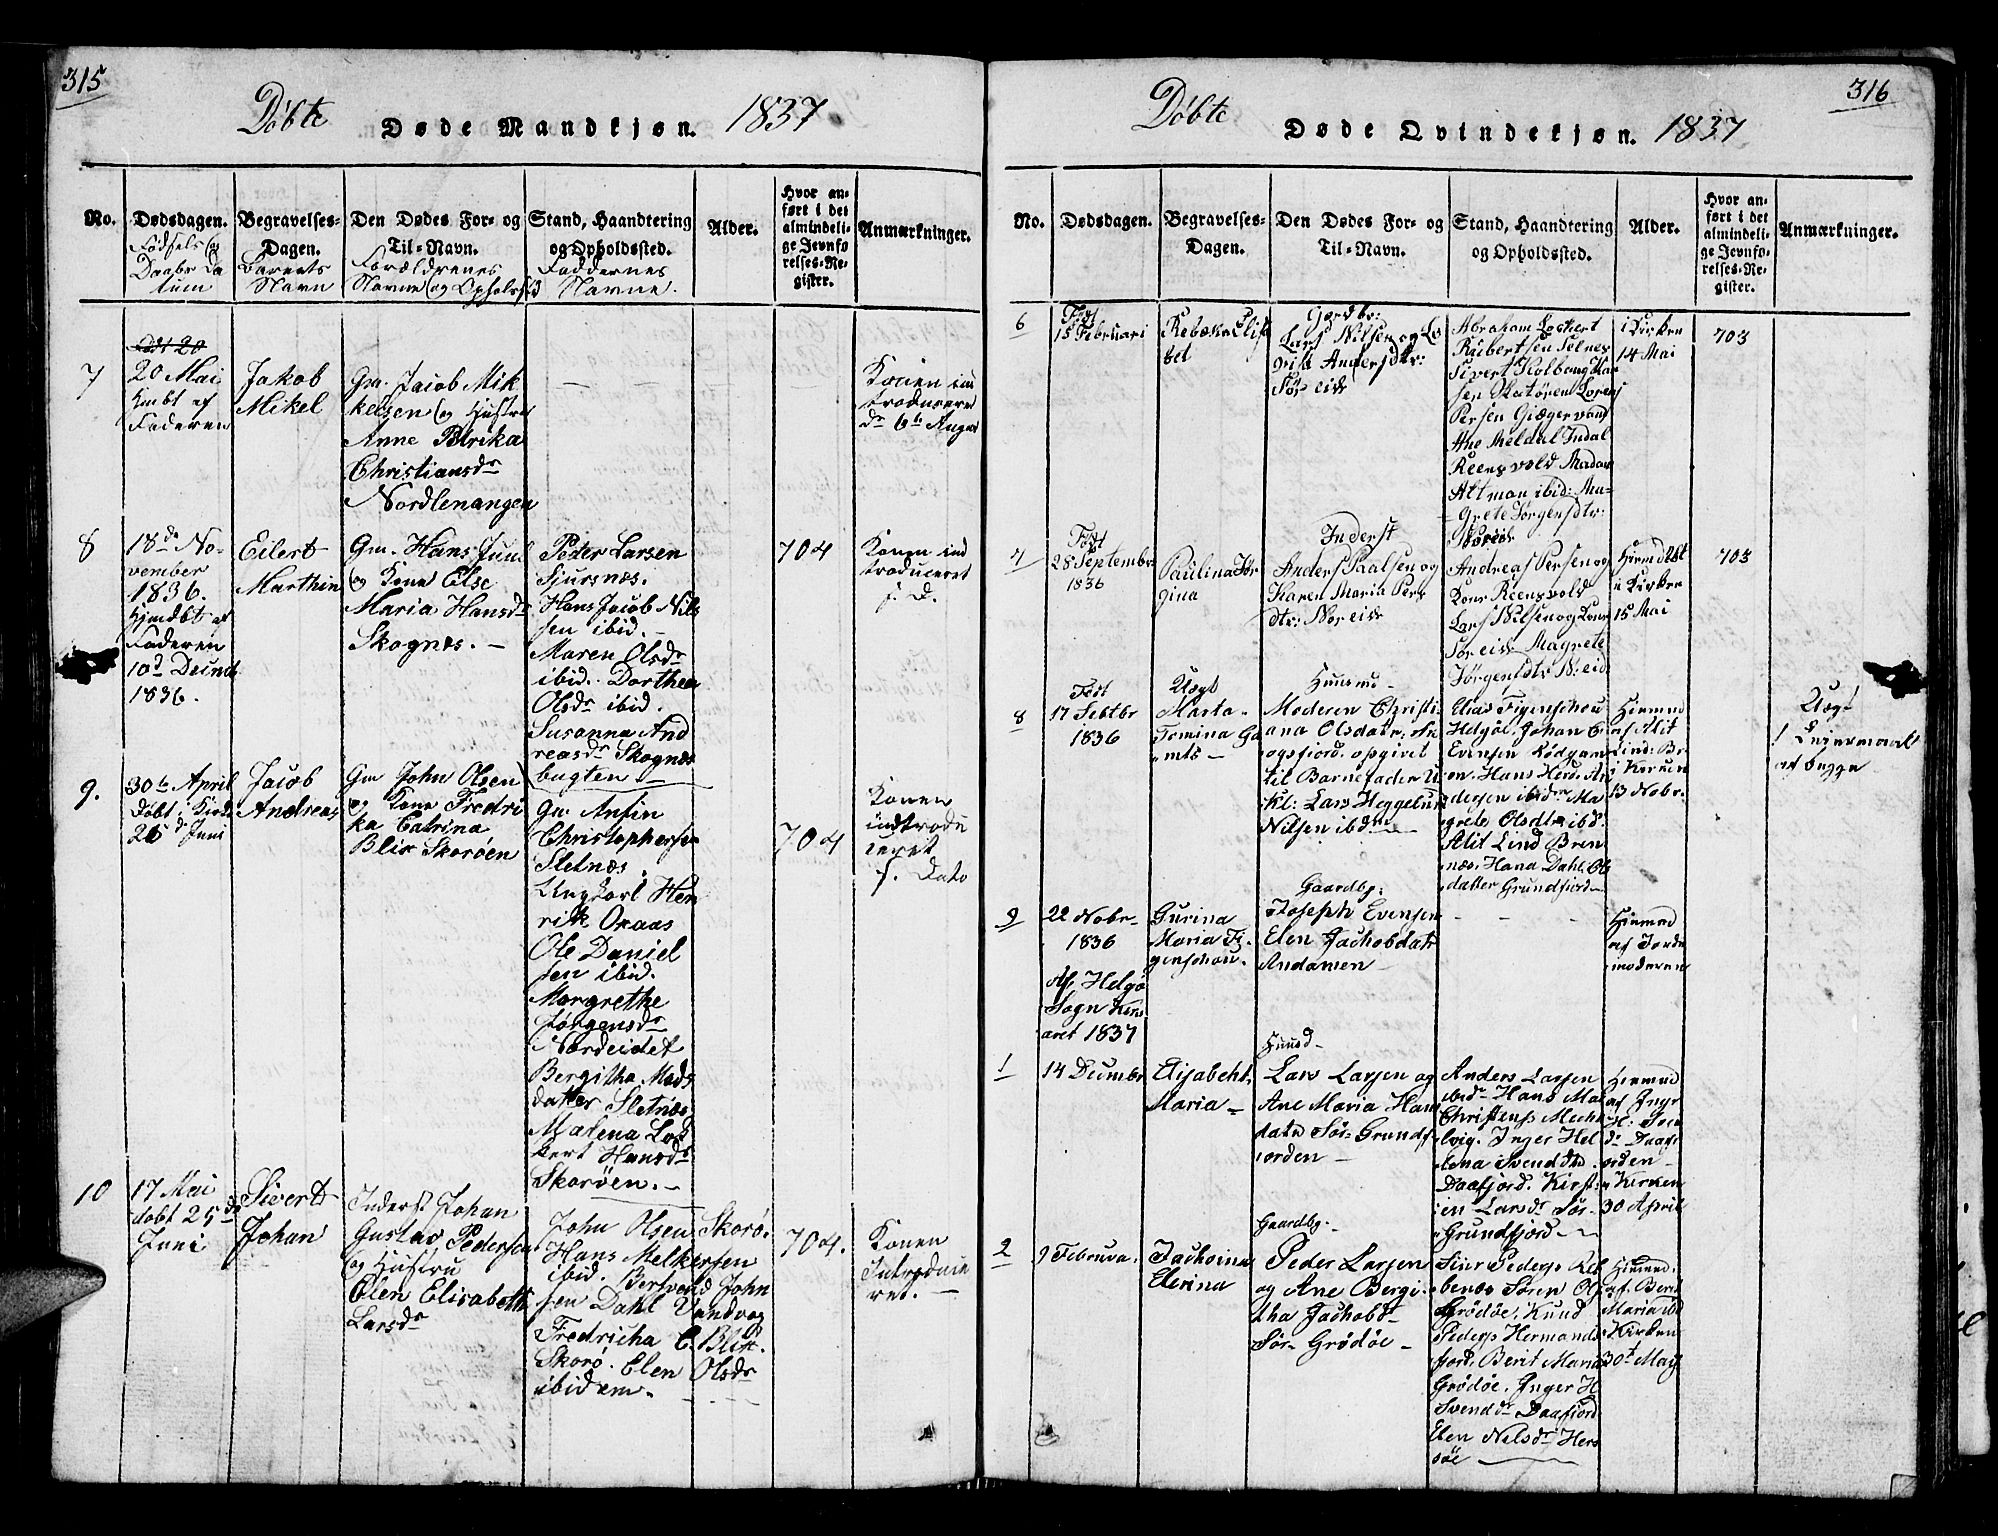 315
Döbte
Døde Mandkjøn. 1837
No.
Dødsdagen.
Fødsels og
Daabs Da
tum
Begravelses-
Dagen.
Barnets
Navn
Den Dødes For- og
Til-Navn.
Forældrenes
Navne og Opholdsst
Stand, Haandtering
og Opholdssted.
Faddernes
Navne.
Alder.
Hvor an-
ført i det
almindeli-
ge Jevnfø
relses-Re-
gister.
Anmærkninger.
7
Født 20
20 Mai
hmbt af
Faderen
Jakob
Mikel
Gm. Jacob Mik
kelsen og Hustru
Anne Petrika
Christiansdr
Nordlenangen
Konen in
troducere
8
18de No-
vember
1836.
Hjmdbt af
Faderen
1836.
Eilert
Marthin
Gm. Hans Juul
og Kone Else
Maria Hansdr
Skognæs. -
Peder Larsen
Sjursnæs.
Hans Jacob Nils
sen ibid. -
Maren Olsdr
ibid. Dorthea
Olsdr ibid.
Susanna And
reasdr Skognæs
bugten -
704
Konen ind
troduceret
s. D.
9.
30te April
døbt i Kirk
25de Juni
Jacob
Andreas
Gm John Olsen
og Kone Fredri
ka Catrina
Blix Skorøen
Gm. Anfin
Christophersen
Sletnæs.
Ungkarl Hen
rik Oxaas
Ole Daniel
sen ibid.
Margrethe
Jørgensdr
Nordeidet
Bergitha Mads
datter Sletnæs
Malena Lok
kert Hansdr
Skorøen. -
704
Konen
indtrodu
ceret
s. Dato
10
17 Mai
døbt 25de
Juni
Sivert
Johan
Inderst Johan
Gustav Pedersen
og Hustru
Elen Elisabeth
Larsdr
John Olsen Skorø.
Hans Melkersen
ibid. Bersvend John
sen Dahl Vandvag
Fredricha C. Blix.
Skorø. Elen Olsdr
ibidem.
704.
Konen
Introduce
ret. -
316
Döbte
Døde Qvindekjøn. 1837
No.
Dødsdagen.
Begravelses-
Dagen.
Den Dødes For- og
Til-Navn.
Stand, Haandtering
og Opholdssted.
Alder.
Hvor an-
ført i det
almindeli-
ge Jevnfø-
relses-Re-
gister.
Anmærkninger.
6
Født
15 Februari
Rebækæ Elisa
bet
Gaardbr:
Lars Nilsen og Lo
vise Andersdtr:
Sør eide
Abraham Lockert
Rubertsen Selnes
Sivert Kolbang Han
sen Skatøren Lorens
Persen Giæger vand
Ane Meldal Indal
Reensvold Madam
Altman ibid: Ma-
Grete Jørgensdtr:
Noreid
i Kirken
14 Mai
703
7
Født
28 September
1836
Paulina Jør
gina
Inderst
Anders Paalsen og
Karen Maria Pers
dtr: Nor eide
Andreas Persen og
Kone Reensvold
Lars Nilsen og Kone
Sør eide Magrete
Jørgensdtr N: eid
Hiemdøbt
i Kirken
15 Mai
703
8
Født
17 Septbr
1836
Uægt
Marta
Tomina Ga
Huusmd -
Moderen Christi-
ana Olsdatr, An
ogsfiord, opgivet
til Barnefader U
Kl: Lars Heggelund
Nilsen ibdm
Elias Figenschou
Helgøe, Johan E
Evensen Rödgam
en. Hans Henr. An
dersen ibidm Ma
grete Olsdtr ibd.
Alit Lind Bren
næs. Hana Dahl. Ol
datter Grundfiord -
Hiemmd
af Alit
Lind: Br
i Kirken
13 Nobr.
Uægt
! Leiermaal
af begge
9
22 Nobr-
1836
Gurina
Maria Fi-
genschou.
Gaardbg:
Joseph Evensen
Elen Jachobdatr
Andamen -
Hiemmd
af Jorde
moderen
Af Helgø
Sogn Kirke
aaret 1837
1
14 Decembr
Elisabeht
Maria -
Huusd -
Lars Larsen og
Ane Maria Han
datr Sør Grundf
iorden -
Anders Larsen
ibdr Hans Mal
Christens Mecht
lvig. Inger Hel
lena Svendsdtr
Daafjord. Kirst
in Larsdr Sør
Grundfjord -
Hiemmd
af Ingr
H: Sven
dr Daafi
orden -
i Kirken
30 April
2
9 Februva.
Jachoina
Elerina
Gaardbg. -
Peder Larsen
og Ane Bergi-
tha Jachobd -
Sør Grödöe -
Siur Peders Reb
benæs Søren Ols
Grödöe, Knud
Peders Hermands
fjord. Berit Maria
Grödöe. Inger H
Svendsdr Daafjord
Elen Nilsdr Hers
søe
Hiemmd.
af. Berit
Maria ibd
i Kirken
30t May